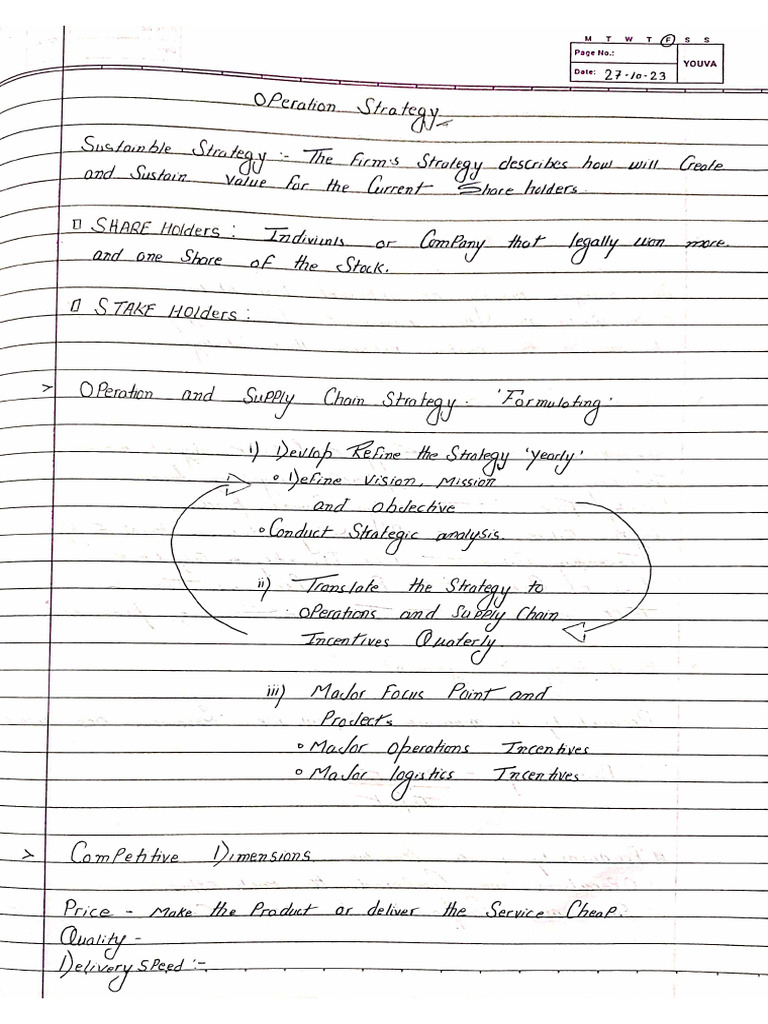 M T W T F S S
Page No.:
Date: 27-10-23
YOUVA
Operation Strategy
Sustainble Strategy :- The Firm's Strategy describes how will Create
and Sustain Value for the Current Share holders.
SHARE Holders : Indiviuals or Company that legally won more
and one Share of the Stock.
STAKE Holders :
> Operation and Supply Chain Strategy. 'Formulating'
i) Devlop Refine the Strategy 'Yearly'
• Define Vision, Mission
and Objective
• Conduct Strategic analysis.
ii) Translate the Strategy to
Operations and Supply Chain
Incentives Quaterly.
iii) Major Focus Point and
Projects
• Major Operations Incentives
• Major logistics Incentives
> Competitive Dimensions
Price - Make the Product or deliver the Service Cheap.
Quality -
Delivery Speed :-